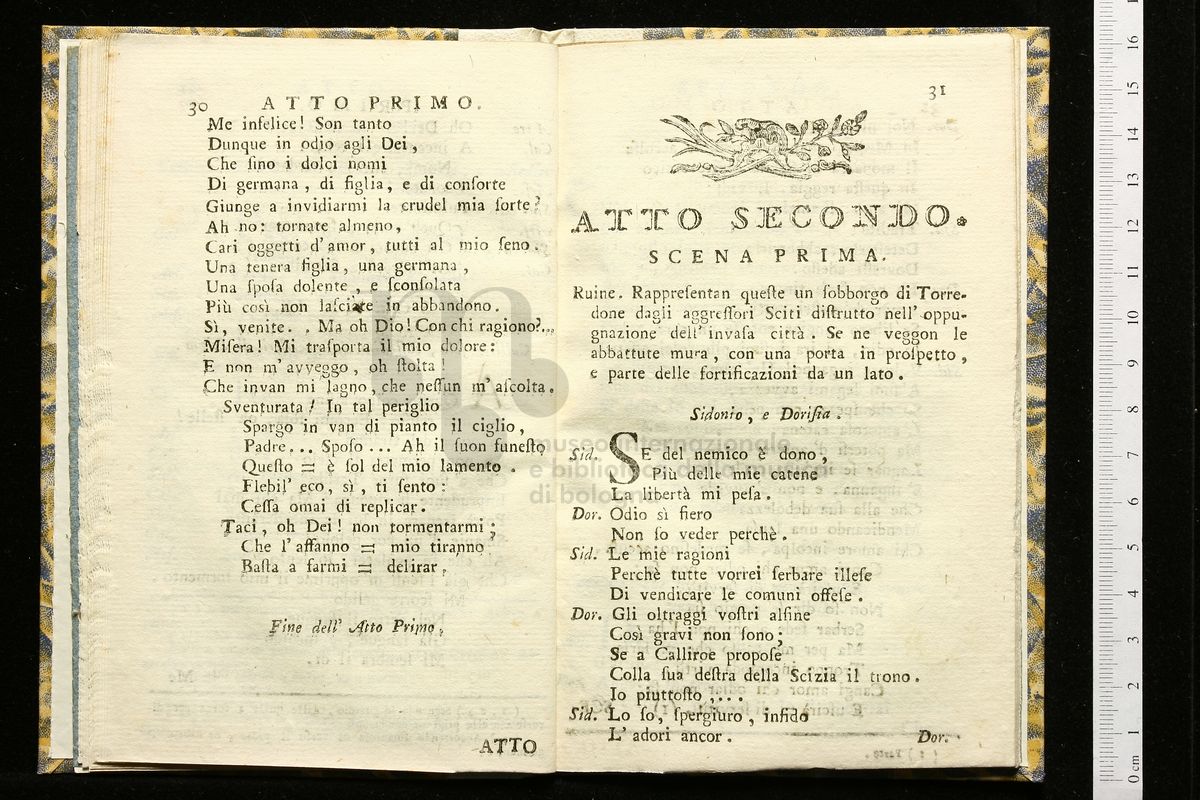 30 ATTO PRIMO.
Me infelice! Son tanto
Dunque in odio agli Dei,
Che ſino i dolci nomi
Di germana, di figlia, e di conſorte
Giunge a invidiarmi la crudel mia ſorte?
Ah no: tornate almeno,
Cari oggetti d'amor, tutti al mio ſeno.
Una tenera figlia, una germana,
Una ſpoſa dolente, e ſconſolata
Più così non laſciate in abbandono.
Sì, venite. . Ma oh Dio! Con chi ragiono?...
Miſera! Mi traſporta il mio dolore:
E non m'avveggo, oh ſtolta!
Che invan mi lagno, che neſſun m'aſcolta.
Sventurata! In tal periglio
Spargo in van di pianto il ciglio,
Padre... Spoſo ... Ah il ſuon funeſto
Queſto = è ſol del mio lamento.
Flebil' eco, sì, ti ſento:
Ceſſa omai di replicar.
Taci, oh Dei! non tormentarmi;
Che l'affanno = mio tiranno
Baſta a farmi = delirar.
Fine dell' Atto Primo.
ATTO
31
ATTO SECONDO.
SCENA PRIMA.
Ruine. Rappreſentan queſte un ſobborgo di Torre-
done dagli aggreſſori Sciti diſtrutto nell' oppu-
gnazione dell' invaſa città. Se ne veggon le
abbattute mura, con una porta in proſpetto,
e parte delle fortificazioni da un lato.
Sidonio, e Doriſta.
Sid. SE del nemico è dono,
Più delle mie catene
La libertà mi peſa.
Dor. Odio sì fiero
Non ſo veder perchè.
Sid. Le mie ragioni
Perchè tutte vorrei ſerbare illeſe
Di vendicare le comuni offeſe.
Dor. Gli oltraggi voſtri alfine
Così gravi non ſono;
Se a Calliroe propoſe
Colla ſua deſtra della Scizia il trono.
Io piuttoſto,...
Sid. Lo ſo, ſpergiuro, infido
L'adori ancor.
Dor.
museo internazionale
e biblioteca della musica
di bologna
0 cm 1 2 3 4 5 6 7 8 9 10 11 12 13 14 15 16